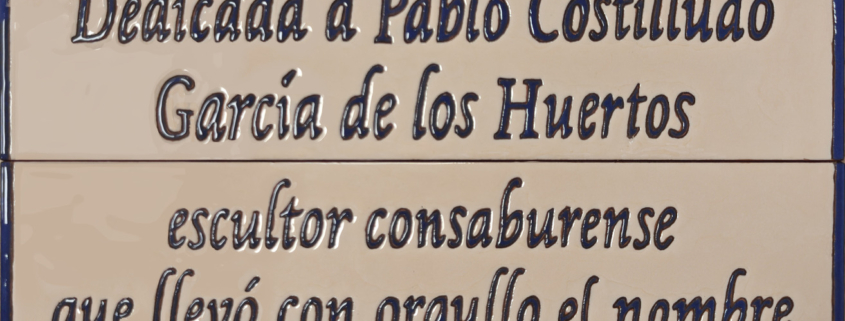 Dedicada a Pablo Costilludo
García de los Huertos
escultor consaburense
que llevó con orgullo el nombre